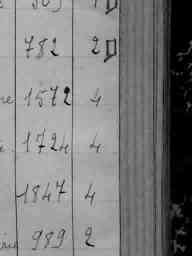 782 2
1572 4
1724 4
1847 4
989 2